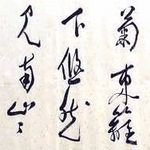 菊東籬
下悠然
見南山〻